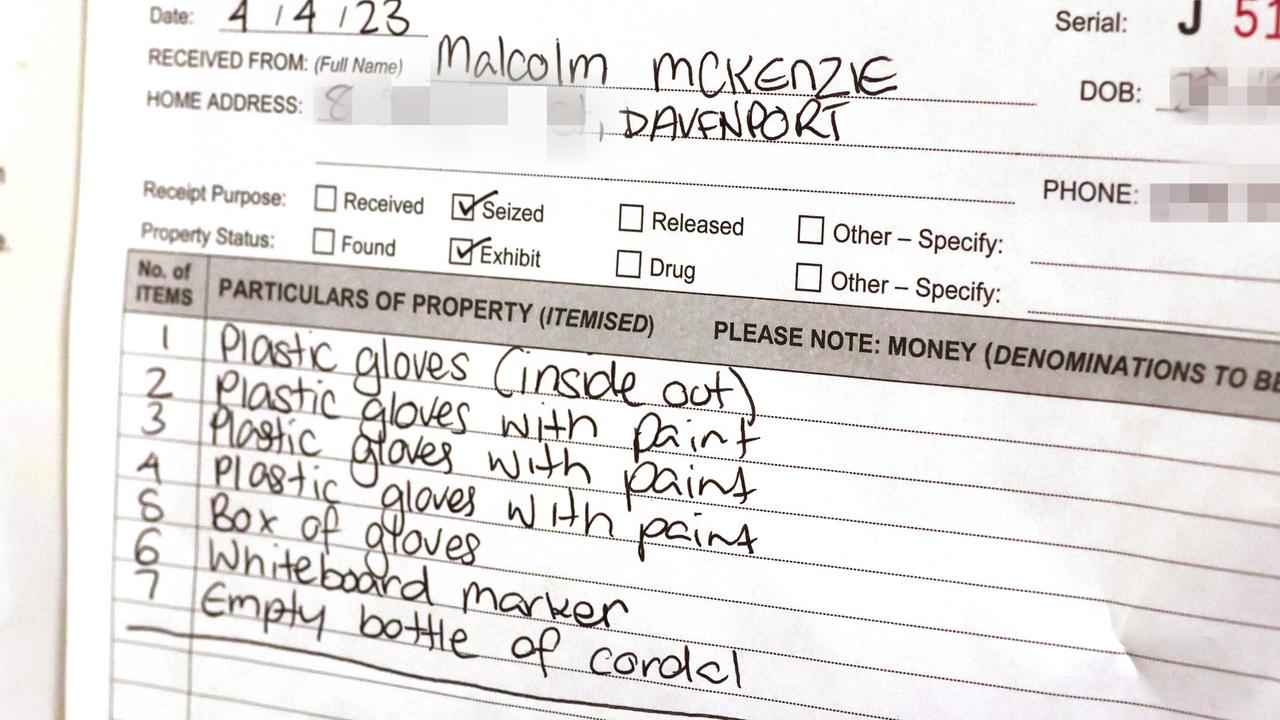 Date: 4/4/23
Serial: J 51
RECEIVED FROM: (Full Name) Malcolm MCKENZIE
DOB:
HOME ADDRESS: 8 st, DAVENPORT
PHONE:
Receipt Purpose: Received Seized Released Other – Specify:
Property Status: Found Exhibit Drug Other – Specify:
No. of ITEMS
PARTICULARS OF PROPERTY (ITEMISED) PLEASE NOTE: MONEY (DENOMINATIONS TO BE
1 Plastic gloves (inside out)
2 Plastic gloves with paint
3 Plastic gloves with paint
4 Plastic gloves with paint
5 Box of gloves
6 Whiteboard marker
7 Empty bottle of cordal